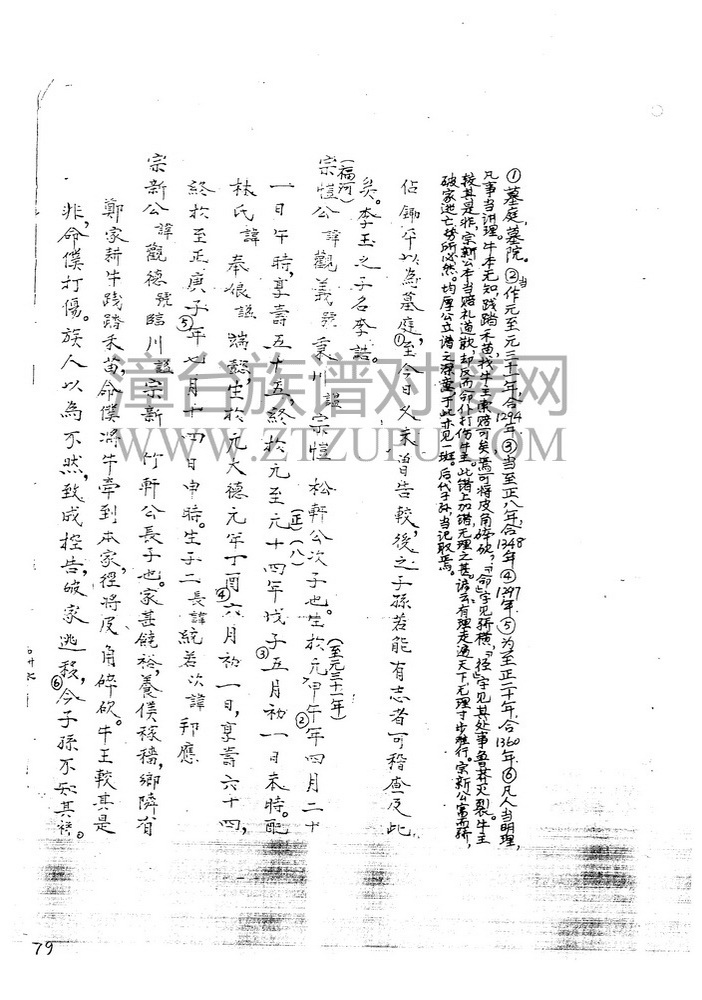 ①墓庭墓院。②当作元至元三十一年,合1294年③当至正八年,合1348年④1297年⑤为至正二十年,合1360年⑥凡人当明理,
凡事当讲理。牛本无知,践踏禾苗,找牛主索赔可矣,焉可将皮角碎砍,"命"字见骄横,"径"字见其处事鲁莽灭裂。牛主
较其是非,宗新公本当赔礼道歉,却反而命仆打伤牛主,此错上加错,无理之甚。谚云:有理走遍天下,无理寸步难行。宗新公富而骄,
破家逃亡势所必然。均厚公立谱之深意于此亦见一斑。后代子孙,当记取焉。
佔鋤平以為墓庭,①至今日久未曾告較,後之子孫若能有志者可稽查及此
矣。李玉之子名李誥。
(福河)
宗愷公諱觀義號東川謚宗愷 松軒公次子也。生於元甲午年四月二十
(至元三十一年)②
一日午時,享壽五十五,終於元至元十四年戊子五月初一日未時。配
(正)(八)③
林氏諱奉娘謚端懿,生於元大德元年丁酉六月初一日,享壽六十四,
④
終於至正庚子年七月十四日申時。生子二長諱統若次諱邦應
⑤
宗新公諱觀德號臨川謚宗新 竹軒公長子也。家甚饒裕,養僕稼穡,鄉隣有
鄭家耕牛踐踏禾苗,命僕將牛牽到本家,徑將皮角碎砍。牛王較其是
非,命僕打傷。族人以為不然,致成控告,破家逃移,⑥今子孫不知其
漳台族谱对接网
WWW.ZTZUPU.COM
79